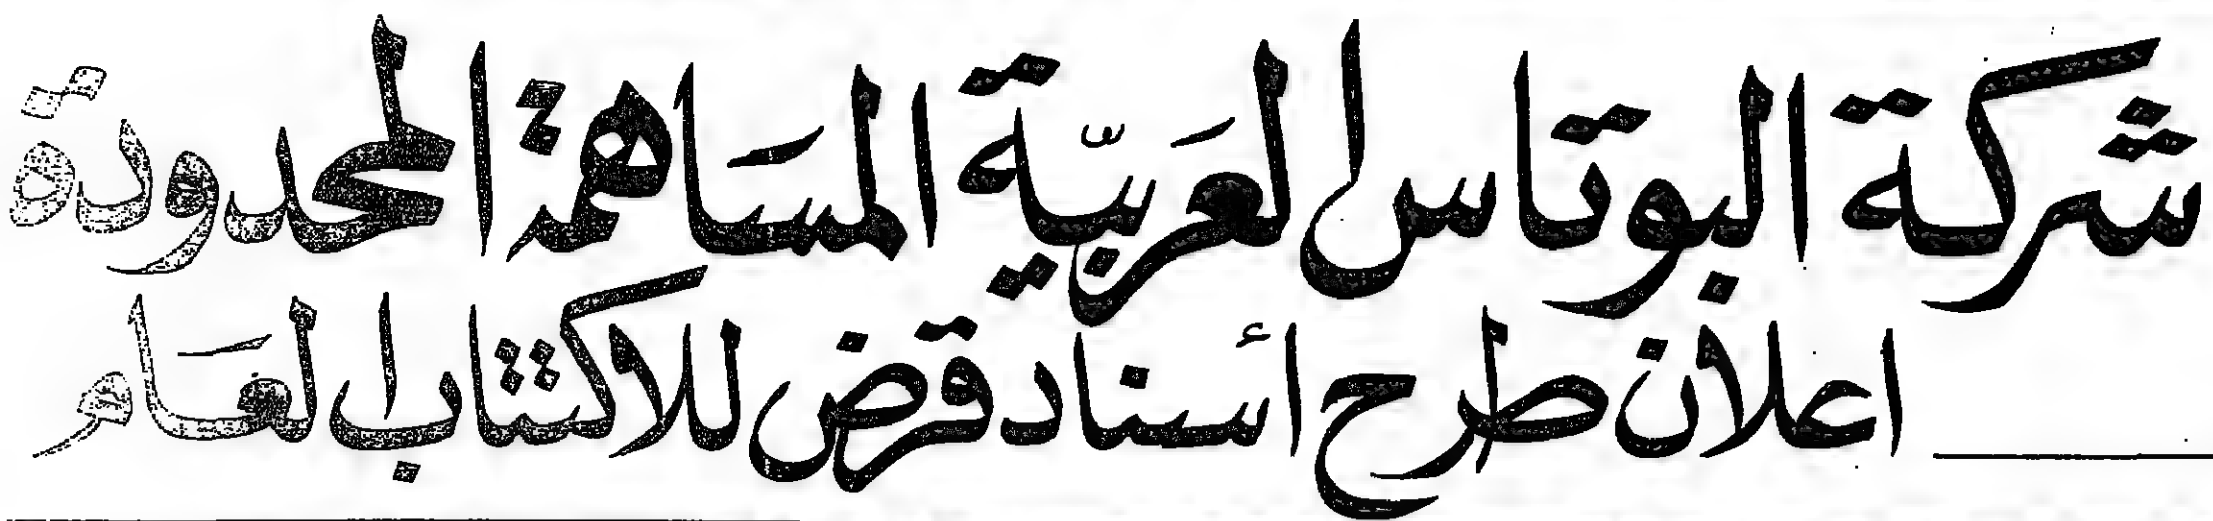 شركة البوتاس العَربيّة المسَاهمة المحدودة
اعلان طرح أسناد قرض للاكتتاب العَام